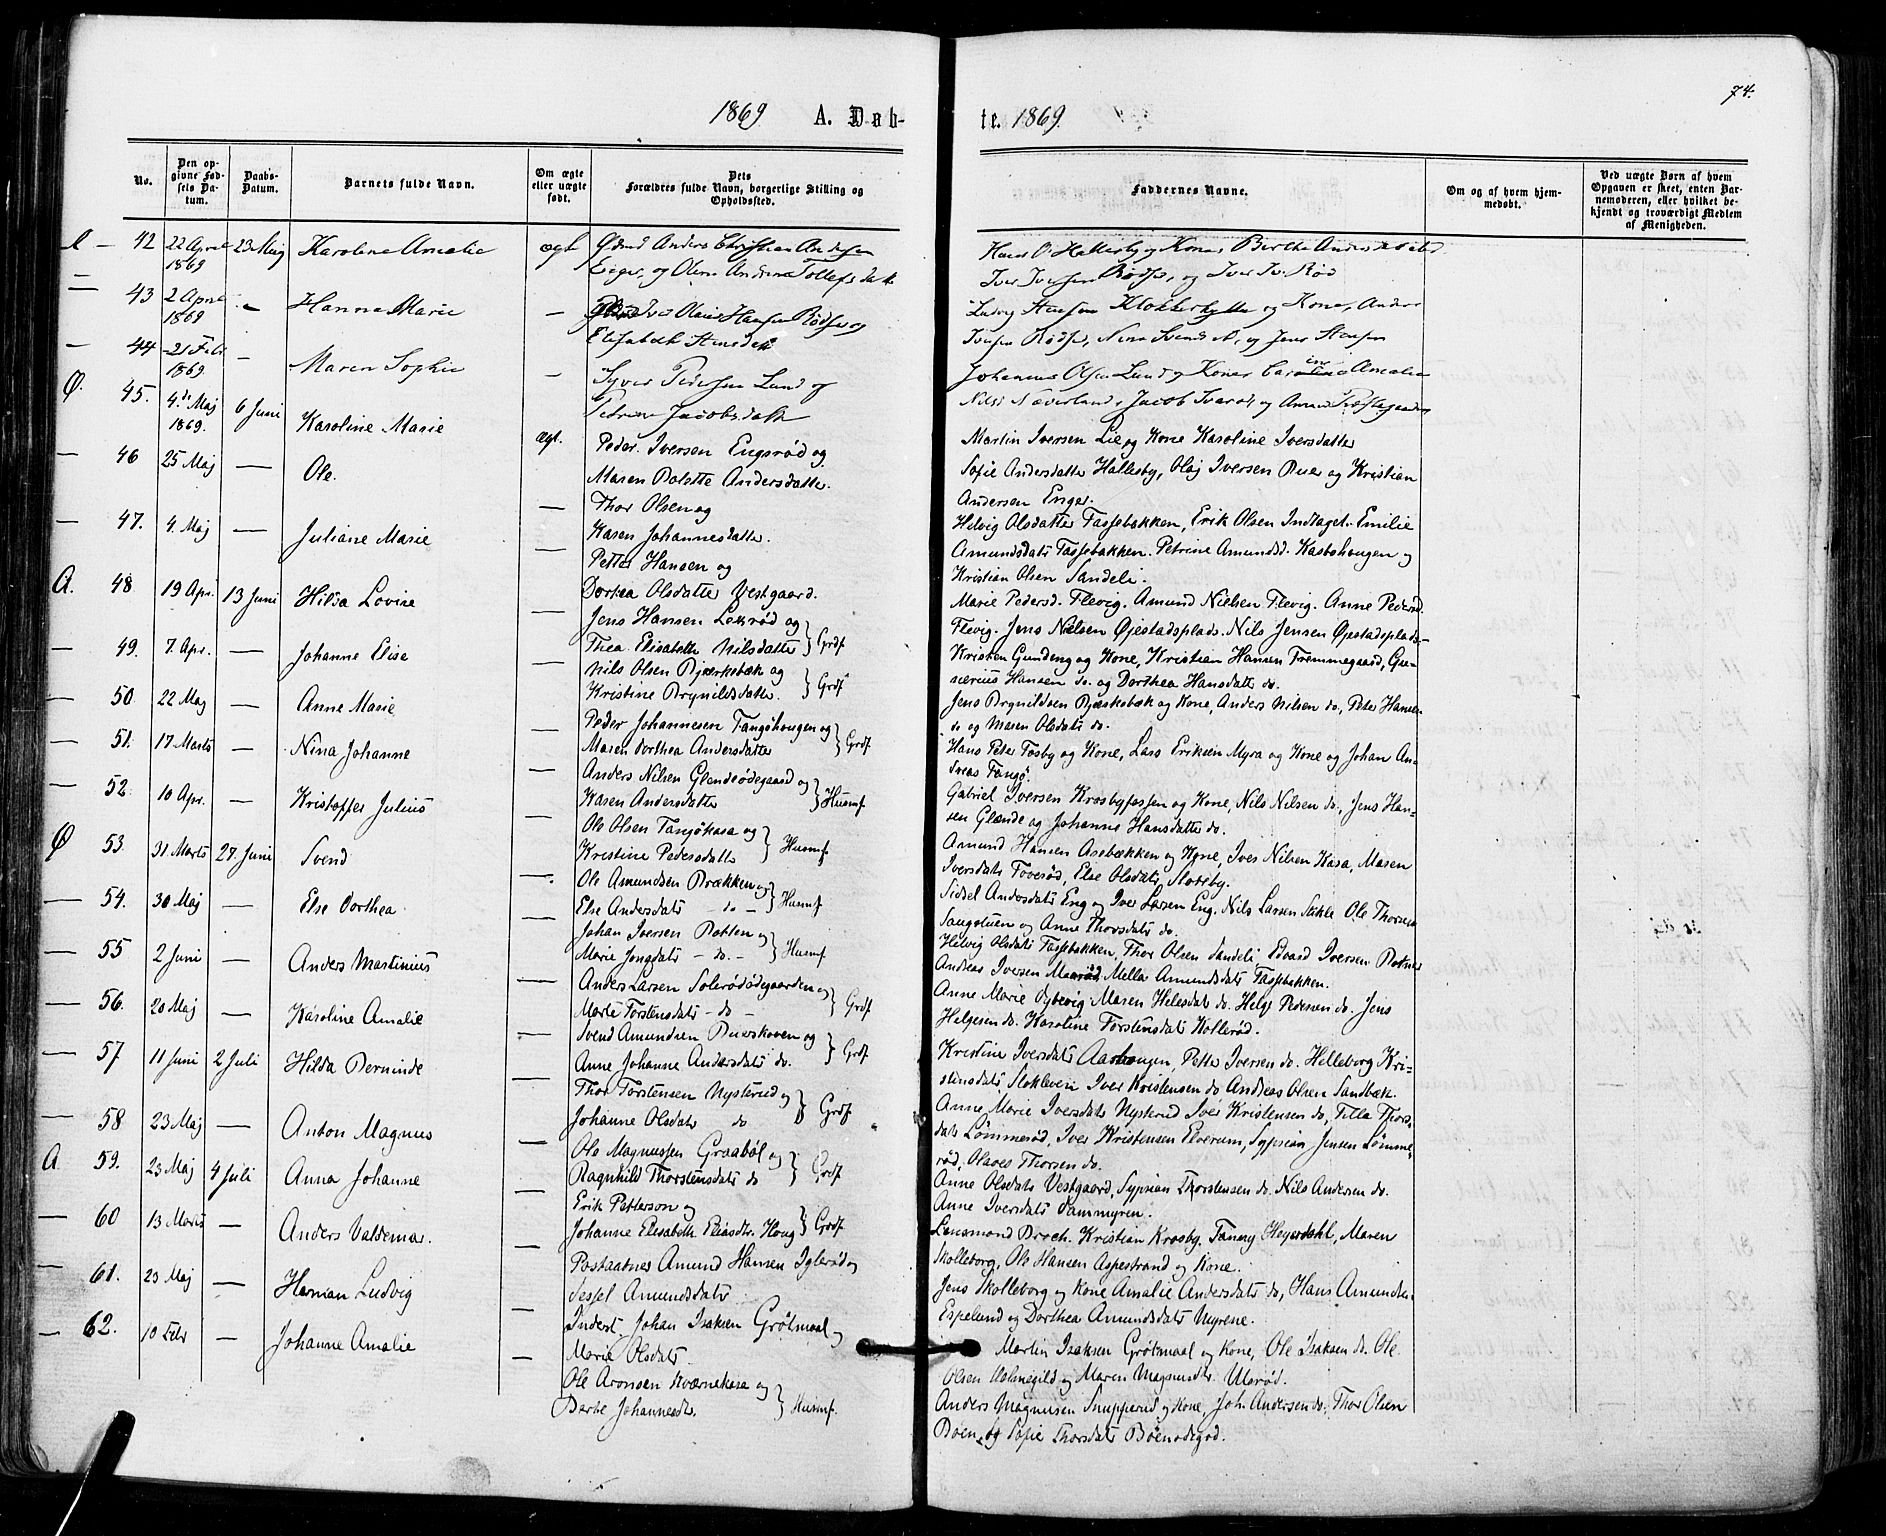 74.
1869 A. Døb-
te. 1869
No.
Den op-
givne Fød-
sels Da-
tum.
Daabs-
Datum.
Barnets fulde Navn.
Om ægte
eller uægte
født.
Dets
Forældres fulde Navn, borgerlige Stilling og
Opholdssted.
Faddernes Navne.
Om og af hvem hjem-
medøbt.
Ved uægte Børn af hvem
Opgaven er skeet, enten Bar-
nemoderen, eller hvilket be-
kjendt og troværdigt Medlem
af Menigheden.
42 22 April 1869 23 Maj Karoline Amalie ægt
Anders Christian Andersen
Enger og Olene Andrine Tollefsdatt
Hans O Hallesby og Kone, Birthe Andersdatter
Iver Iversen Rødsr, og Iver Iv. Rød
43 2 April 1869 - Hanna Marie -
Iver Olaus Hansen Rødsr og
Elisabeth Stensdatt
Ludvig Stensen Klokkerhytta og Kone, Anders
Iversen Rødsr, Nina Svends d., og Jens Stensen
44 21 Feb 1869 - Maren Sophie -
Syver Pedersen Lund og
Petrine Jacobsdatt
Johannes Olsen Lund og Kone Caroline Amalie
Nils Næverland, Jacob Tverød, og Amund Præstegaarden
Ø. 45. 4de Maj 1869. 6 Juni Karoline Marie ægt.
Peder Iversen Engsrød og
Maren Bolette Andersdatter.
Martin Iversen Lie og Kone Karoline Iversdatter
Sofie Andersdatter Hallesby, Olaj Iversen Buer og Kristian
Andersen Enger.
46 25 Maj — Ole. —
Thor Olsen og
Karen Johannesdatter.
Helvig Olsdatter Tassebækken, Erik Olsen Indtaget. Emilie
Amundsdatr Tassebakken. Petrine Amundsd. Kasbohaugen og
Kristian Olsen Sandeli.
47. 4 Maj — Juliane Marie —
Petter Hansen og
Dorthea Olsdatter Vestgaard.
Marie Pedersd. Flevig. Amund Nielsen Flevig. Anne Pedersd.
Flevig. Jens Nielsen Øjestadsplads. Nils Jensen Øjestadsplads
A. 48 19 Apr. 13 Juni Hilda Lovise —
Jens Hansen Lexrød og
Thea Elisabeth Nilsdatter } Grdf
Kristen Gundeng og Kone, Kristian Hansen Fremmegaard, Gu-
nerius Hansen do. og Dorthea Hansdatter do.
49. 7. Apr. — Johanne Elise —
Nils Olsen Bjærkebæk og
Kristine Brynildsdatter. } Grdf
Jens Brynildsen Bjærkebæk og Kone, Anders Nilsen do, Peter Hansen
do og Maren Olsdatr do.
50 22 Maj — Anne Marie —
Peder Johannesen Tangøhougen og
Maren Dorthea Andersdatter } Grdf
Hans Peter Fosby og Kone, Lars Eriksen Myra og Kone og Johan An-
dreas Tangø.
51. 17 Marts — Nina Johanne —
Anders Nilsen Glenderødegaard og
Karen Andersdatter } Husmf
Gabriel Iversen Krosbyfossen og Kone, Nils Nilsen do, Jens Han-
sen Glænde og Johanne Hansdatter do.
52. 10 Apr. — Kristoffer Julius —
Ole Olsen Tangøkasa og
Kristine Pedersdatter } Husmf
Amund Hansen Asebækken og Kone, Iver Nilsen Kasa, Maren
Iversdatr Foverød, Else Olsdatr, Sloreby.
Ø 53. 31. Marts 27. Juni Svend —
Ole Amundsen Brækken og
Else Andersdatr - do - } Husmf
Sidsel Andersdatr Eng og Iver Larsen Eng. Nils Larsen Sickle Ole Thorsen
Saugstuen og Anne Thorsdatr do.
54. 30 Maj — Else Dorthea —
Johan Iversen Rotten og
Marie Jonsdatr - do. - } Husmf
Helvig Olsdatr Tassebækken, Thor Olsen Sandeli, Edvard Iversen Rotnes
Andreas Iversen Maarød, Mella Amundsdatr Tassebækken.
55 2 Juni — Anders Martinius —
Anders Larsen Solerødødegaarden og
Marte Torstensdatr - do - } Grdf
Anne Marie Dybevig. Maren Helesdat do. Helge Pedersen do. Jens
Helgesen do. Karoline Torstensdatr Kollerød.
56. 20 Maj — Karoline Amalie —
Svend Amundsen Buerskoven og
Anne Johanne Andersdatr do. } Grdf
Kristine Iversdatr Aarhougen, Petter Iversen do. Helleborg Kri-
stensdatr Stokleven Iver Kristensen do Andreas Olsen Sandbæk.
57 11 Juni 2 Juli Hilda Berninde —
Thor Torstensen Nysterud og
Johanne Olsdatr do } Grdf
Anne Marie Iversdatr Nysterud Iver Kristensen do, Tilla Thors-
datr Lømmerød, Iver Kristensen Elverum, Syprian Jensen Lømme-
rød, Olaves Thorsen do.
58 23 Maj — Anton Magnus —
Ole Magnussen Graabøl og
Ragnhild Thorstensdatr do } Grdf
Anne Olsdatr Vestgaard, Syprian Thorstensen do. Nils Andersen do.
Anne Iversdatr Dammyren.
A. 59. 23 Maj 4 Juli Anna Johanne —
Erik Petterson og
Johanne Elisabeth Eliasdtr. Houg } Grdf
Lensmand Broch. Kristian Krosby. Fanny Heyerdahl, Maren
Skolleborg, Ole Hansen Aspestrand og Kone.
60 13 Marts — Anders Valdemar. —
Postaabner Amund Hansen Iglerød og
Sessel Amundsdatr
Jens Skolleborg og Kone Amalie Andersdatr do, Hans Amundsen
Espelund og Dorthea Amundsdatr Myrene.
61. 23 Maj — Herman Ludvig —
Inderst Johan Isaksen Grøtmaal og
Marie Olsdatr.
Martin Isaksen Grøtmaal og Kone, Ole Isaksen do. Ole
Olsen Holmegild og Maren Magnusdtr. Ulerød.
62. 10 Febr — Johanne Amalie —
Ole Aronsen Kværnekasa og
Berte Johannesdtr. } Husmf.
Anders Magnusen Snupperud og Kone, Joh. Andersen do, Thor Olsen
Bøen og Sofie Thorsdatr Bøenødegrd.